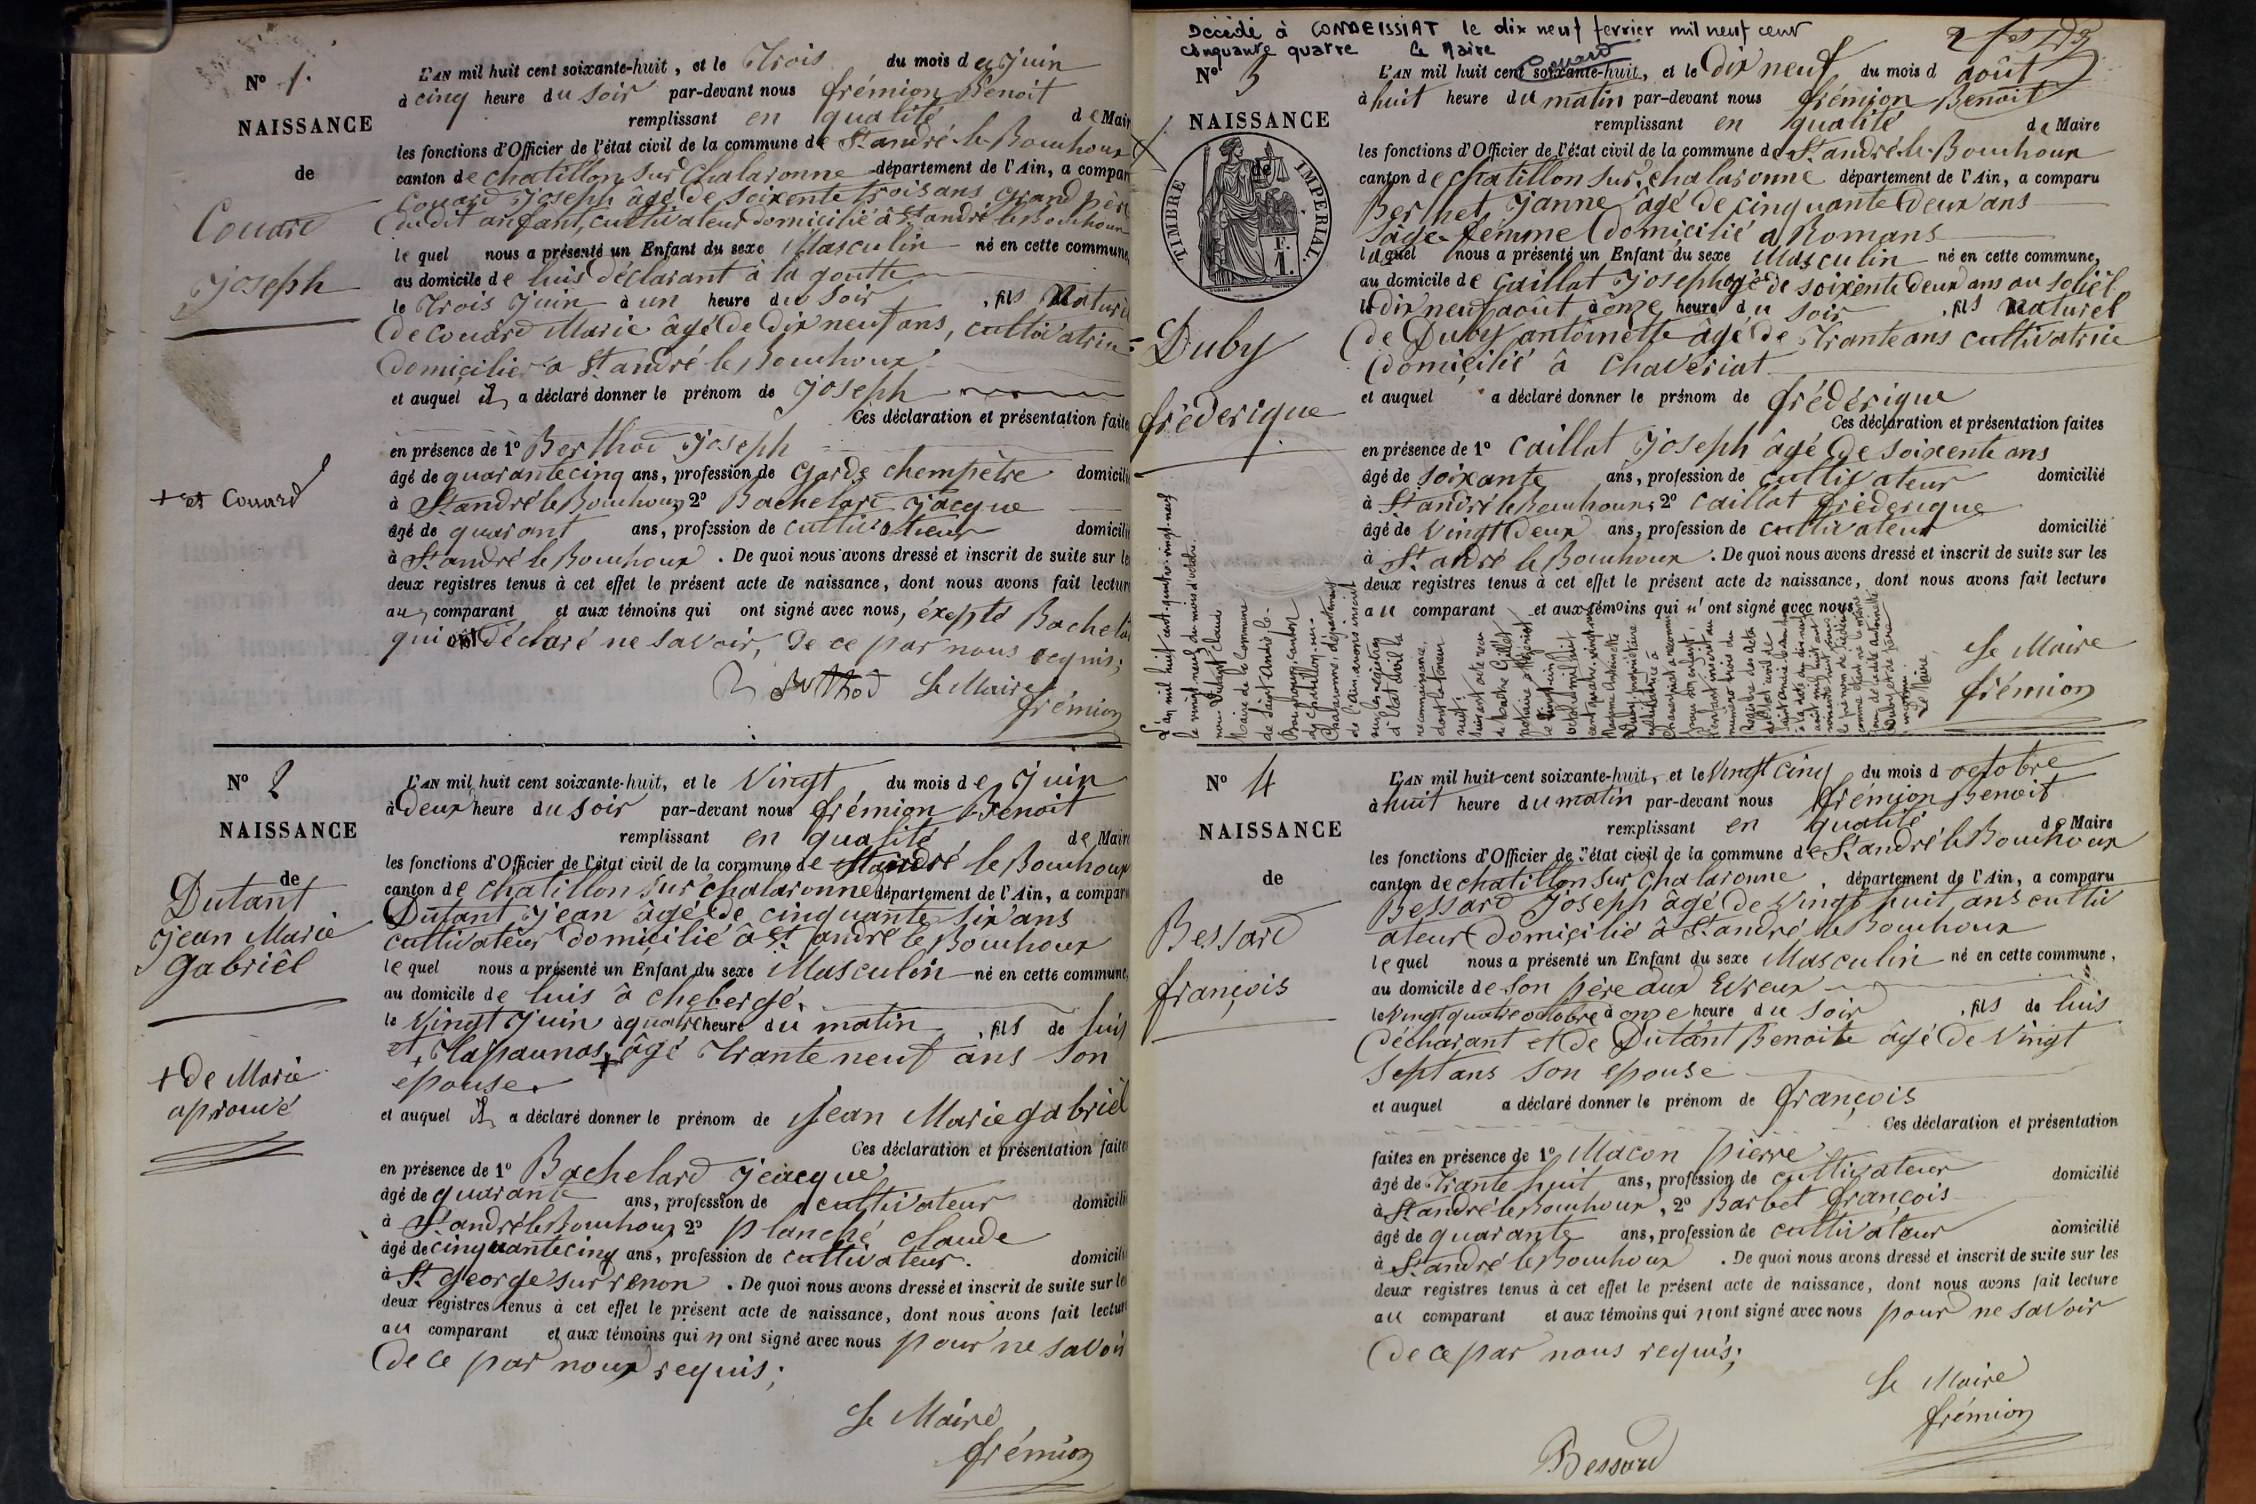 N° 1.
NAISSANCE
de
Couard
Joseph
+ et Couard
L'AN mil huit cent soixante-huit, et le Trois du mois de Juin
à cinq heure du soir par-devant nous frémion Benoit
remplissant en qualité de Mair
les fonctions d'Officier de l'état civil de la commune de St andré-le-Bouchoux
canton de chatillon sur chalaronne département de l'Ain, a compar
Couard Joseph âgé de soixente trois ans grand père
dudit anfant, cultivateur domicilié à St andré le Bouchoux
lequel nous a présenté un Enfant du sexe Masculin né en cette commune,
au domicile de luis déclarant à la goutte
le Trois Juin à un heure du soir, fils Nature
de Couard Marie âgé de dix neuf ans, cultivatrice
domicilier a St andré le Bouchoux
et auquel il a déclaré donner le prénom de Joseph
Ces déclaration et présentation faite
en présence de 1° Berthod Joseph
âgé de quarantecinq ans, profession de Garde chempètre domicili
à St andré le Bouchoux 2° Bachelard Jacque
âgé de quarant ans, profession de cultivateur domicili
à St andré le Bouchoux. De quoi nous avons dressé et inscrit de suite sur le
deux registres tenus à cet effet le présent acte de naissance, dont nous avons fait lectur
au comparant et aux témoins qui ont signé avec nous, éxepté Bachela
qui déclaré ne savoir, de ce par nous requis;
Berthod Le Maire
frémion
N° 2
NAISSANCE
de
Dutant
Jean Marie
Gabriêl
+ de Marie
aprouvé
L'AN mil huit cent soixante-huit, et le Vingt du mois de Juin
à deux heure du soir par-devant nous frémion Benoit
remplissant en qualité de Mair
les fonctions d'Officier de l'état civil de la commune de St andré le Bouchoux
canton de chatillon sur chalaronne département de l'Ain, a compar
Dutant Jean âgé de cinquante six ans
cultivateur domicilié â St andré le Bouchoux
lequel nous a présenté un Enfant du sexe Masculin né en cette commune,
au domicile de luis â chebergé.
le Vingt Juin à quatre heure du matin, fils de luis
et + âgé Trante neuf ans son
epouse.
et auquel il a déclaré donner le prénom de Jean Marie gabriel
Ces déclaration et présentation faite
en présence de 1° Bachelard Jeacque
âgé de quarante ans, profession de cultivateur domicili
à St andré le Bouchoux 2° planché claude
âgé de cinquantecinq ans, profession de cultivateur. domicili
à St george sur renon. De quoi nous avons dressé et inscrit de suite sur le
deux registres tenus à cet effet le présent acte de naissance, dont nous avons fait lectur
au comparant et aux témoins qui n ont signé avec nous pour ne savoir
de ce par nous requis;
Le Maire
frémion
Décédé à CONDEISSIAT le dix neuf fevrier mil neuf cent
cinquante quatre Le Maire
N° 3
NAISSANCE
de
TIMBRE IMPERIAL
Duby
fréderique
L'AN mil huit cent soixante-huit, et le Dix neuf du mois d août
à huit heure du matin par-devant nous frémion Benoit
remplissant en qualité de Maire
les fonctions d'Officier de l'état civil de la commune de St andré-le-Bouchoux
canton de chatillon sur chalaronne département de l'Ain, a comparu
Berthet Janne âgé de cinquante deux ans
Sage-fémme domicilié a Romans
laquel nous a présenté un Enfant du sexe Masculin né en cette commune,
au domicile de Caillat Joseph âgé de soixente deux ans au soliel
le dix neuf août à onze heure du soir, fils Naturel
de Duby antoinette âgé de Trante ans cultivatrice
domicilié â Chaveriat
et auquel a déclaré donner le prénom de frédérique
Ces déclaration et présentation faites
en présence de 1° Caillat Joseph âgé de soixente ans
âgé de soixante ans, profession de cultivateur domicilié
à St andré le Bouchoux 2° Caillat fréderique
âgé de Vingt deux ans, profession de cultivateur domicilié
à St andré le Bouchoux. De quoi nous avons dressé et inscrit de suite sur les
deux registres tenus à cet effet le présent acte de naissance, dont nous avons fait lecture
au comparant et aux témoins qui n' ont signé avec nous
Le Maire
frémion
L'an mil huit cent quatre-vingt-neuf
le vingt neuf du mois d'octobre
nous Dutant Claude
Maire de la Commune
de Saint André-le-
Bouchoux, canton
de Chatillon-sur-
Chalaronne, département
de l'ain, avons inscrit
sur les registres
d'Etat civil la
reconnaissance
dont la teneur
suit:
N° 4
NAISSANCE
de
Bessard
françois
L'AN mil huit cent soixante-huit, et le Vingt cinq du mois d octobre
à huit heure du matin par-devant nous frémion Benoit
remplissant en qualité de Maire
les fonctions d'Officier de l'état civil de la commune de St andré le Bouchoux
canton de chatillon sur chalaronne, département de l'Ain, a comparu
Bessard Joseph âgé de Vingt huit ans cultiv
ateur domicilié â St andré le Bouchoux
lequel nous a présenté un Enfant du sexe Masculin né en cette commune,
au domicile de son père aux
le Vingt quatre octobre à onze heure du soir, fils de luis
décharant et de Dutant Benoite âgé de Vingt
Sept ans son epouse
et auquel a déclaré donner le prénom de françois
Ces déclaration et présentation
faites en présence de 1° Macon pierre
âgé de Trante huit ans, profession de cultivateur domicilié
à St andré le Bouchoux, 2° Barbet françois
âgé de quarante ans, profession de cultivateur domicilié
à St andré le Bouchoux. De quoi nous avons dressé et inscrit de suite sur les
deux registres tenus à cet effet le présent acte de naissance, dont nous avons fait lecture
au comparant et aux témoins qui n ont signé avec nous pour ne savoir
de ce par nous requis;
Le Maire
frémion
Bessard